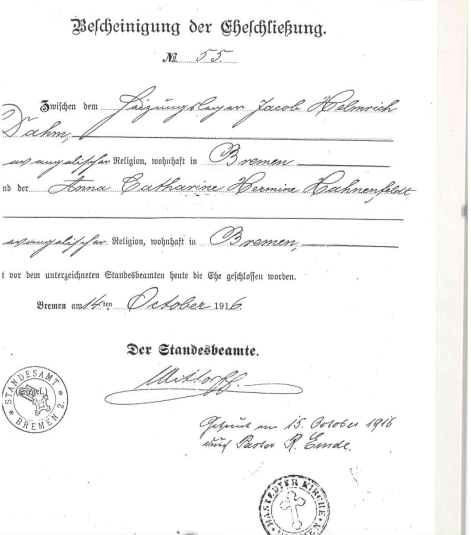 Bescheinigung der Eheschließung.
№ 55.
Zwischen dem Heizungsleger Jacob Helmrich
Dahm,
evangelischer Religion, wohnhaft in Bremen
nd der Anna Catharine Hermine Hahnenfeldt
evangelischer Religion, wohnhaft in Bremen,
t vor dem unterzeichneten Standesbeamten heute die Ehe geschlossen worden.
Bremen am 14ten October 1916.
Der Standesbeamte.
STANDESAMT
Siegel
BREMEN 2.
Getraut am 15. October 1916
durch Pastor R. Emde.
HASTEDTER KIRCHE